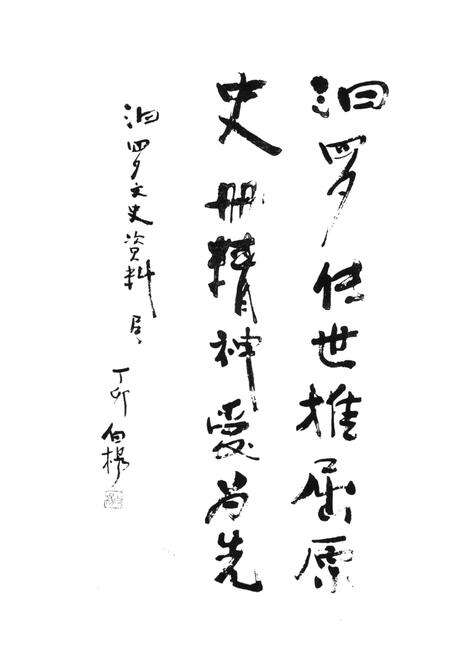 汨罗传世推屈原
史册精神爱为先
汨罗文史资料
丁卯